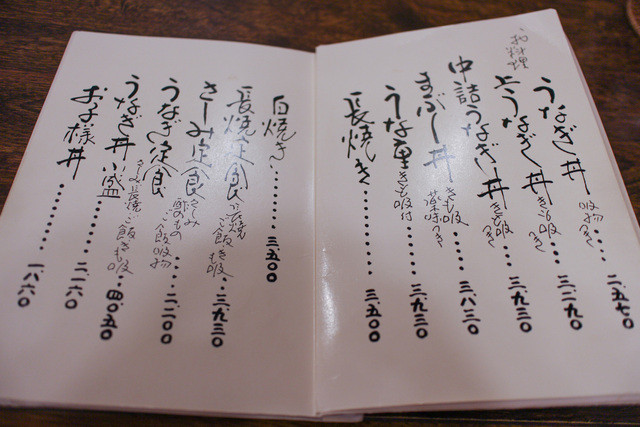 お料理
うなぎ丼 吸物つき……二、五七〇
上うなぎ丼 きも吸つき……三、二九〇
中詰うなぎ丼 きも吸つき……三、九三〇
まぶし丼 きも吸 薬味つき……三、八三〇
うな重 きも吸付……三、九三〇
長焼き……三、五〇〇
白焼き……三、五〇〇
長焼定食 長焼 ご飯 きも吸……三、九三〇
さしみ定食 さしみ 酢のもの ご飯 吸物……二、二〇〇
うなぎ定食 さしみ 長焼 ご飯 きも吸……四、〇五〇
うなぎ丼小盛……二、一六〇
お子様丼……一、八六〇